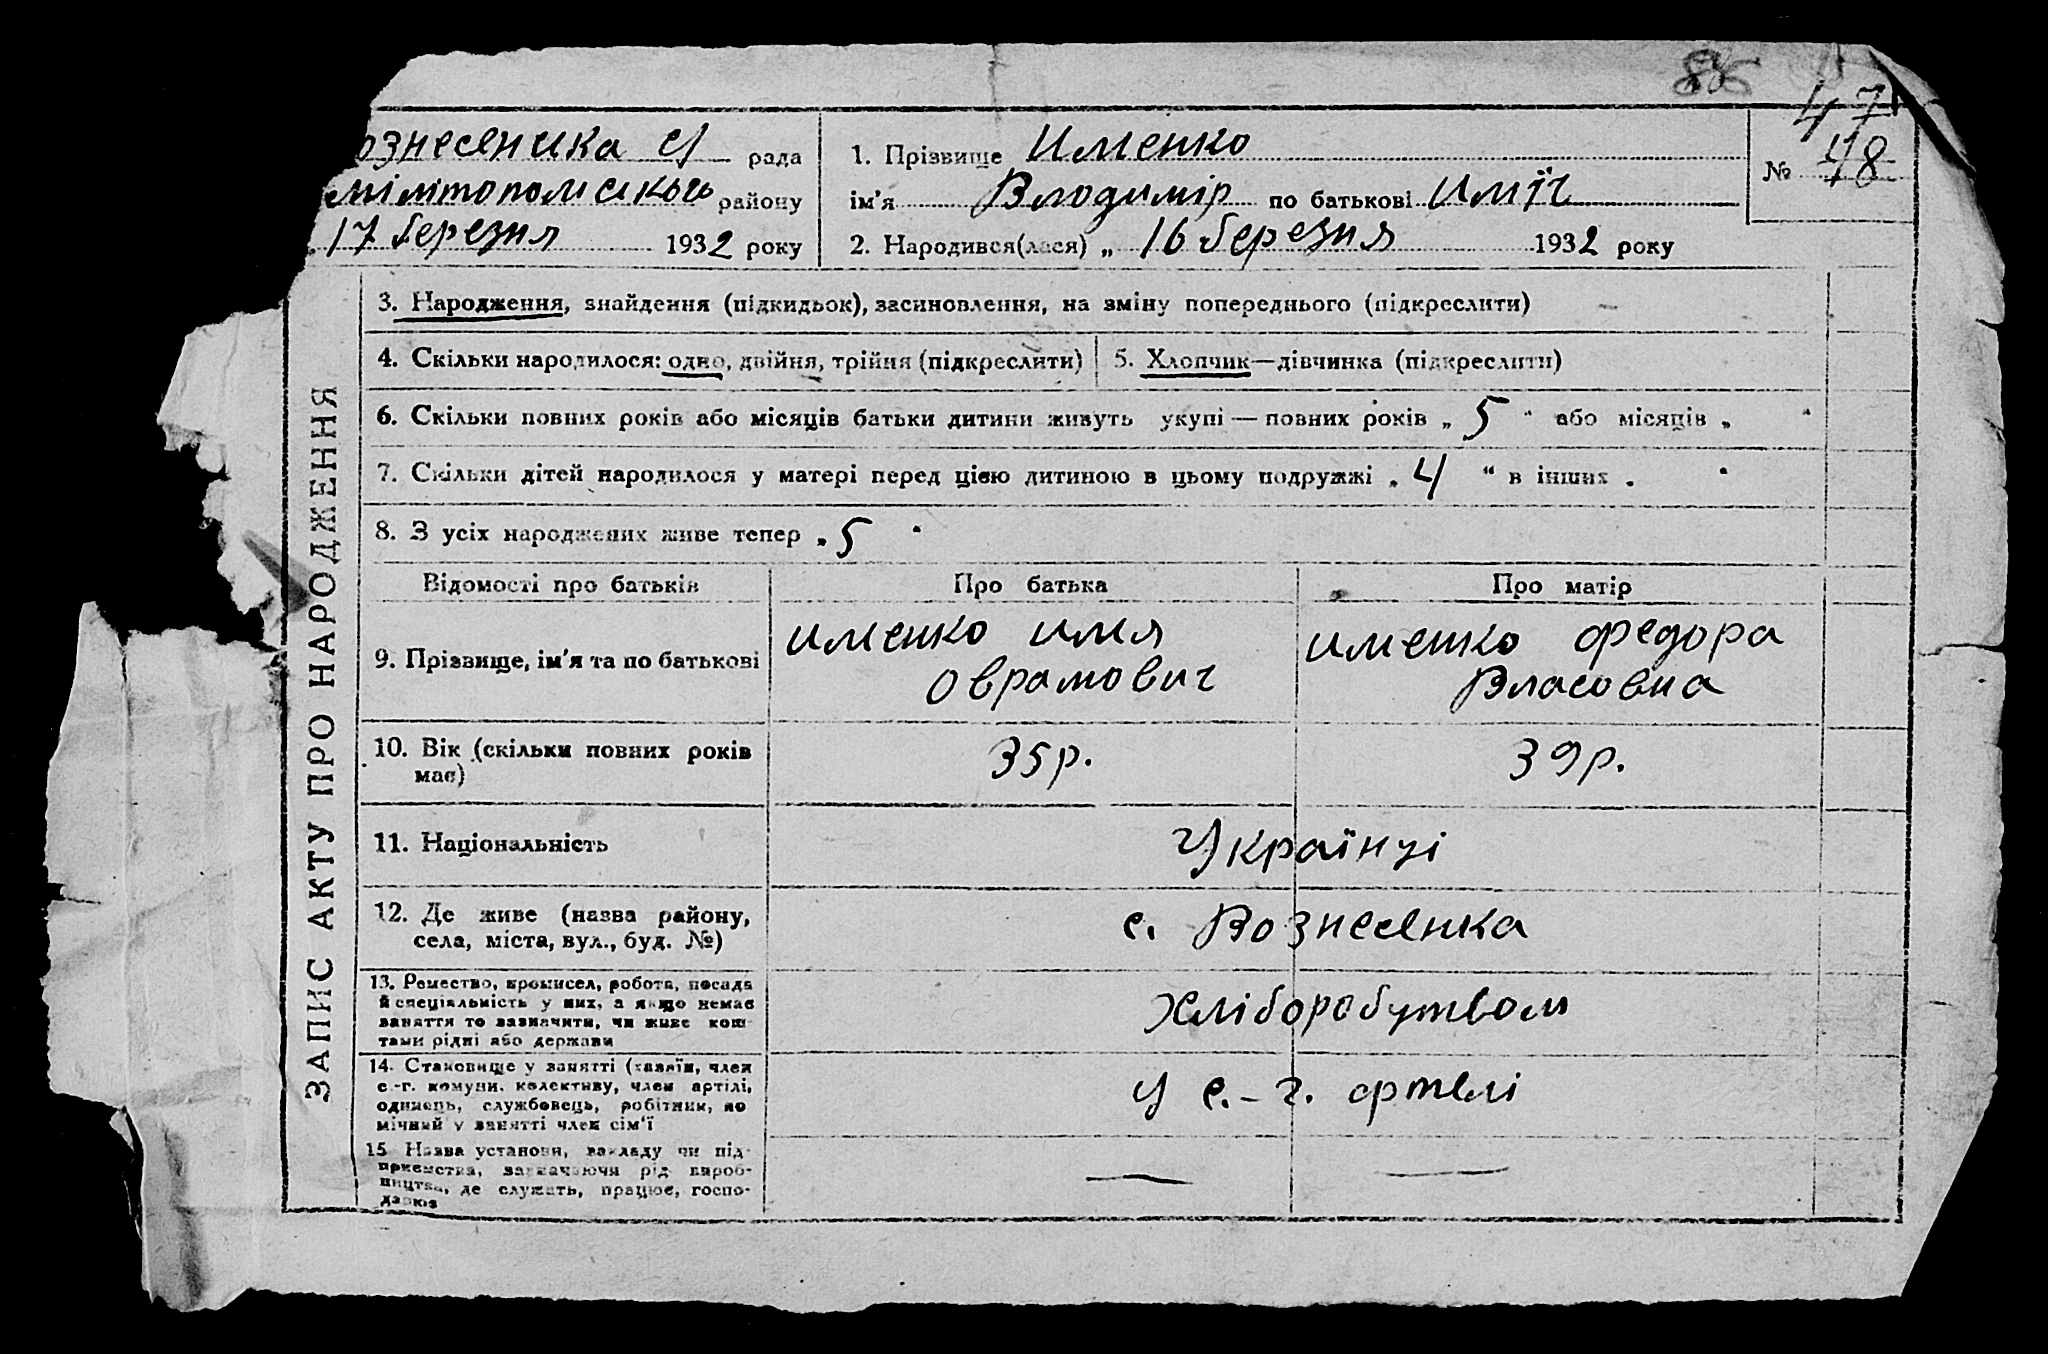 47
48
ознесенка с/ рада
мілітопольського району
17 березня 1932 року
1. Прізвище Именко
ім'я Владимір по батькові Иліч
№
2. Народився(лася) „ 16 березня 1932 року
ЗАПИС АКТУ ПРО НАРОДЖЕННЯ
3. Народження, знайдення (підкидьок), засиновлення, на зміну попереднього (підкреслити)
4. Скільки народилося: одно, двійня, трійня (підкреслити)
5. Хлопчик—дівчинка (підкреслити)
6. Скільки повних років або місяців батьки дитини живуть укупі — повних років „ 5 " або місяців „
7. Скільки дітей народилося у матері перед цією дитиною в цьому подружжі „ 4 “ в інших
8. З усіх народжених живе тепер „ 5
Відомості про батьків
Про батька
Про матір
9. Прізвище, ім'я та по батькові
именко илля
оврамович
именко федора
Власовна
10. Вік (скільки повних років
має)
35р.
39р.
11. Національність
Українці
12. Де живе (назва району,
села, міста, вул., буд. №)
с. Вознесенка
13. Ремество, промисел, робота, посада
й спеціяльність у них, а якщо немає
заняття то зазначити, чи живе кош-
тами рідні або держави
Хліборобутвом
14. Становище у занятті (хазяїн, член
с.-г. комуни, колективу, член артілі,
одинець, службовець, робітник, по
мічний у занятті член сім'ї
У с.-г. артелі
15. Назва установи, закладу чи під-
приємства, зазначаючи рід вироб-
ництва, де служить, працює, госпо-
дарює